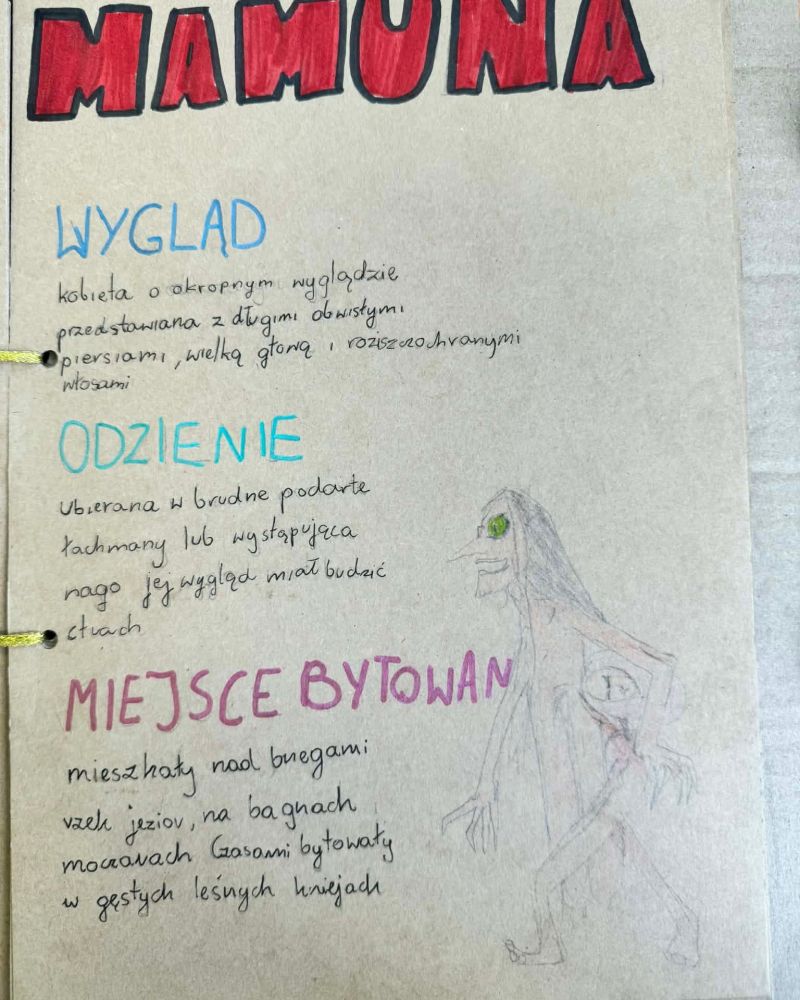 MAMUNA
WYGLĄD
kobieta o okropnym wyglądzie
przedstawiana z długimi obwisłymi
piersiami, wielką głową i roziszczochranymi
włosami
ODZIENIE
ubierana w brudne podarte
łachmany lub występująca
nago jej wygląd miał budzić
strach
MIEJSCE BYTOWAN
mieszkały nad brzegami
rzek jezior, na bagnach
moczarach Czasami bytowały
w gęstych leśnych kniejach